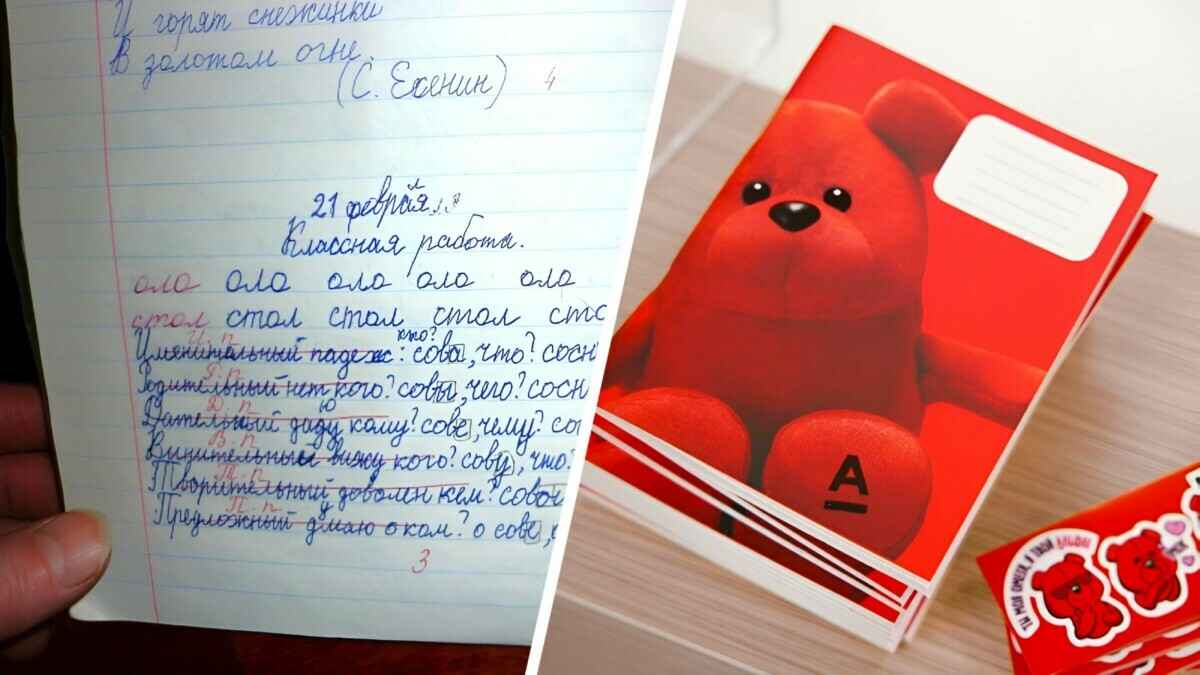 И горят снежинки
В золотом огне.
(С. Есенин) 4
21 февраля
Классная работа.
ола ола ола ола ола
стол стол стол стол сто
И. п. кто?
Именительный падеж: сова, что? сосн
Р. п.
Родительный нет кого? совы, чего? сосн
Д. п. ю
Дательный даду кому? сове, чему? со
В. п.
Винительный вижу кого? сову, что?
Т. п.
Творительный доволен кем? сово
П. п. у
Предложный дмаю о ком? о сове,
3
А
ТЫ МОЯ ОМЕГА, Я ТВОЙ АЛЬФА!